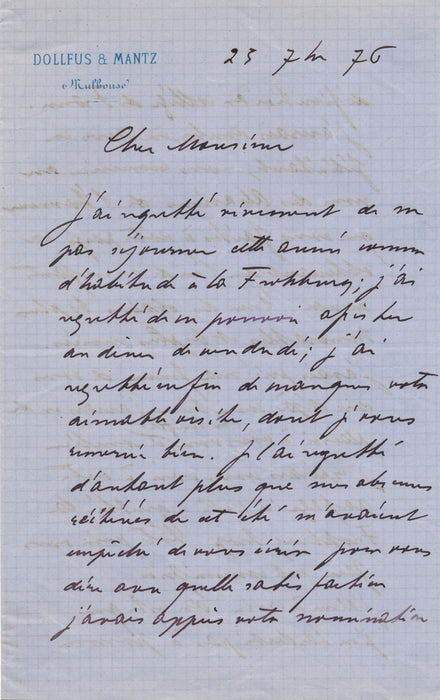 DOLLFUS & MANTZ
Mulhouse
23 7br 76
Cher Monsieur
J'ai regretté vivement de ne
pas séjourner cette année comme
d'habitude à la Frohburg; j'ai
regretté de ne pouvoir assister
au diner de vendredi; j'ai
regretté enfin de manquer votre
aimable visite, dont je vous
remercie bien. Je l'ai regretté
d'autant plus que mes absences
réitérées de cet été m'avaient
empêché de vous écrire pour vous
dire avec quelle satisfaction
j'avais appris votre nomination